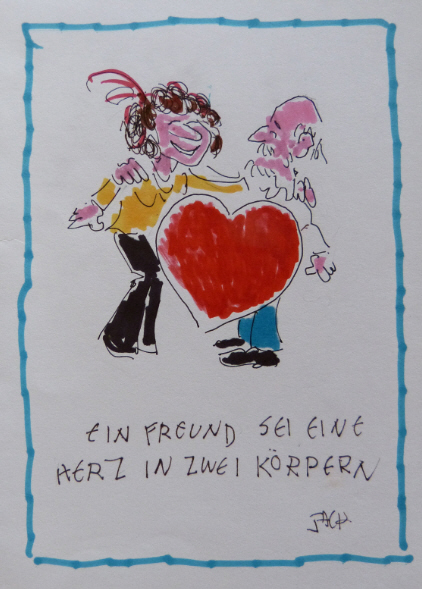 EIN FREUND SEI EINE
HERZ IN ZWEI KÖRPERN
JACK